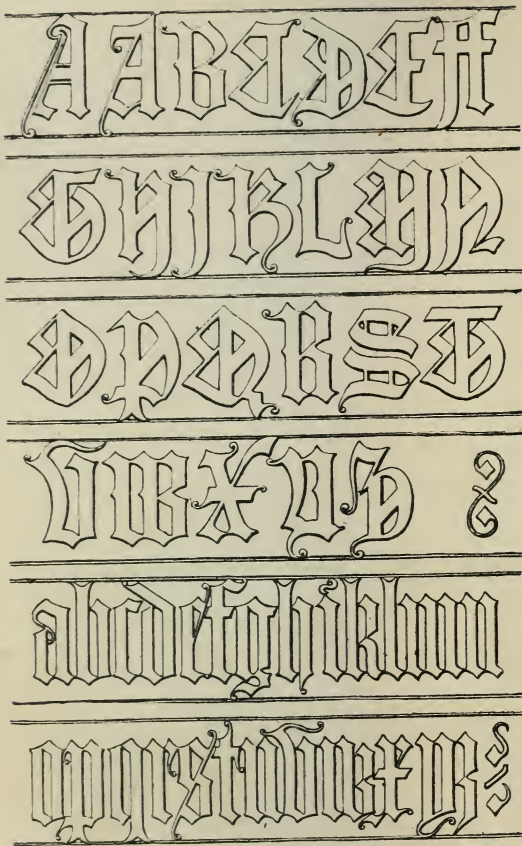 AABCDEF
GHIKLMN
OPQRST
VWXYZ
abcdefghiklmn
opqrstuvwxyz